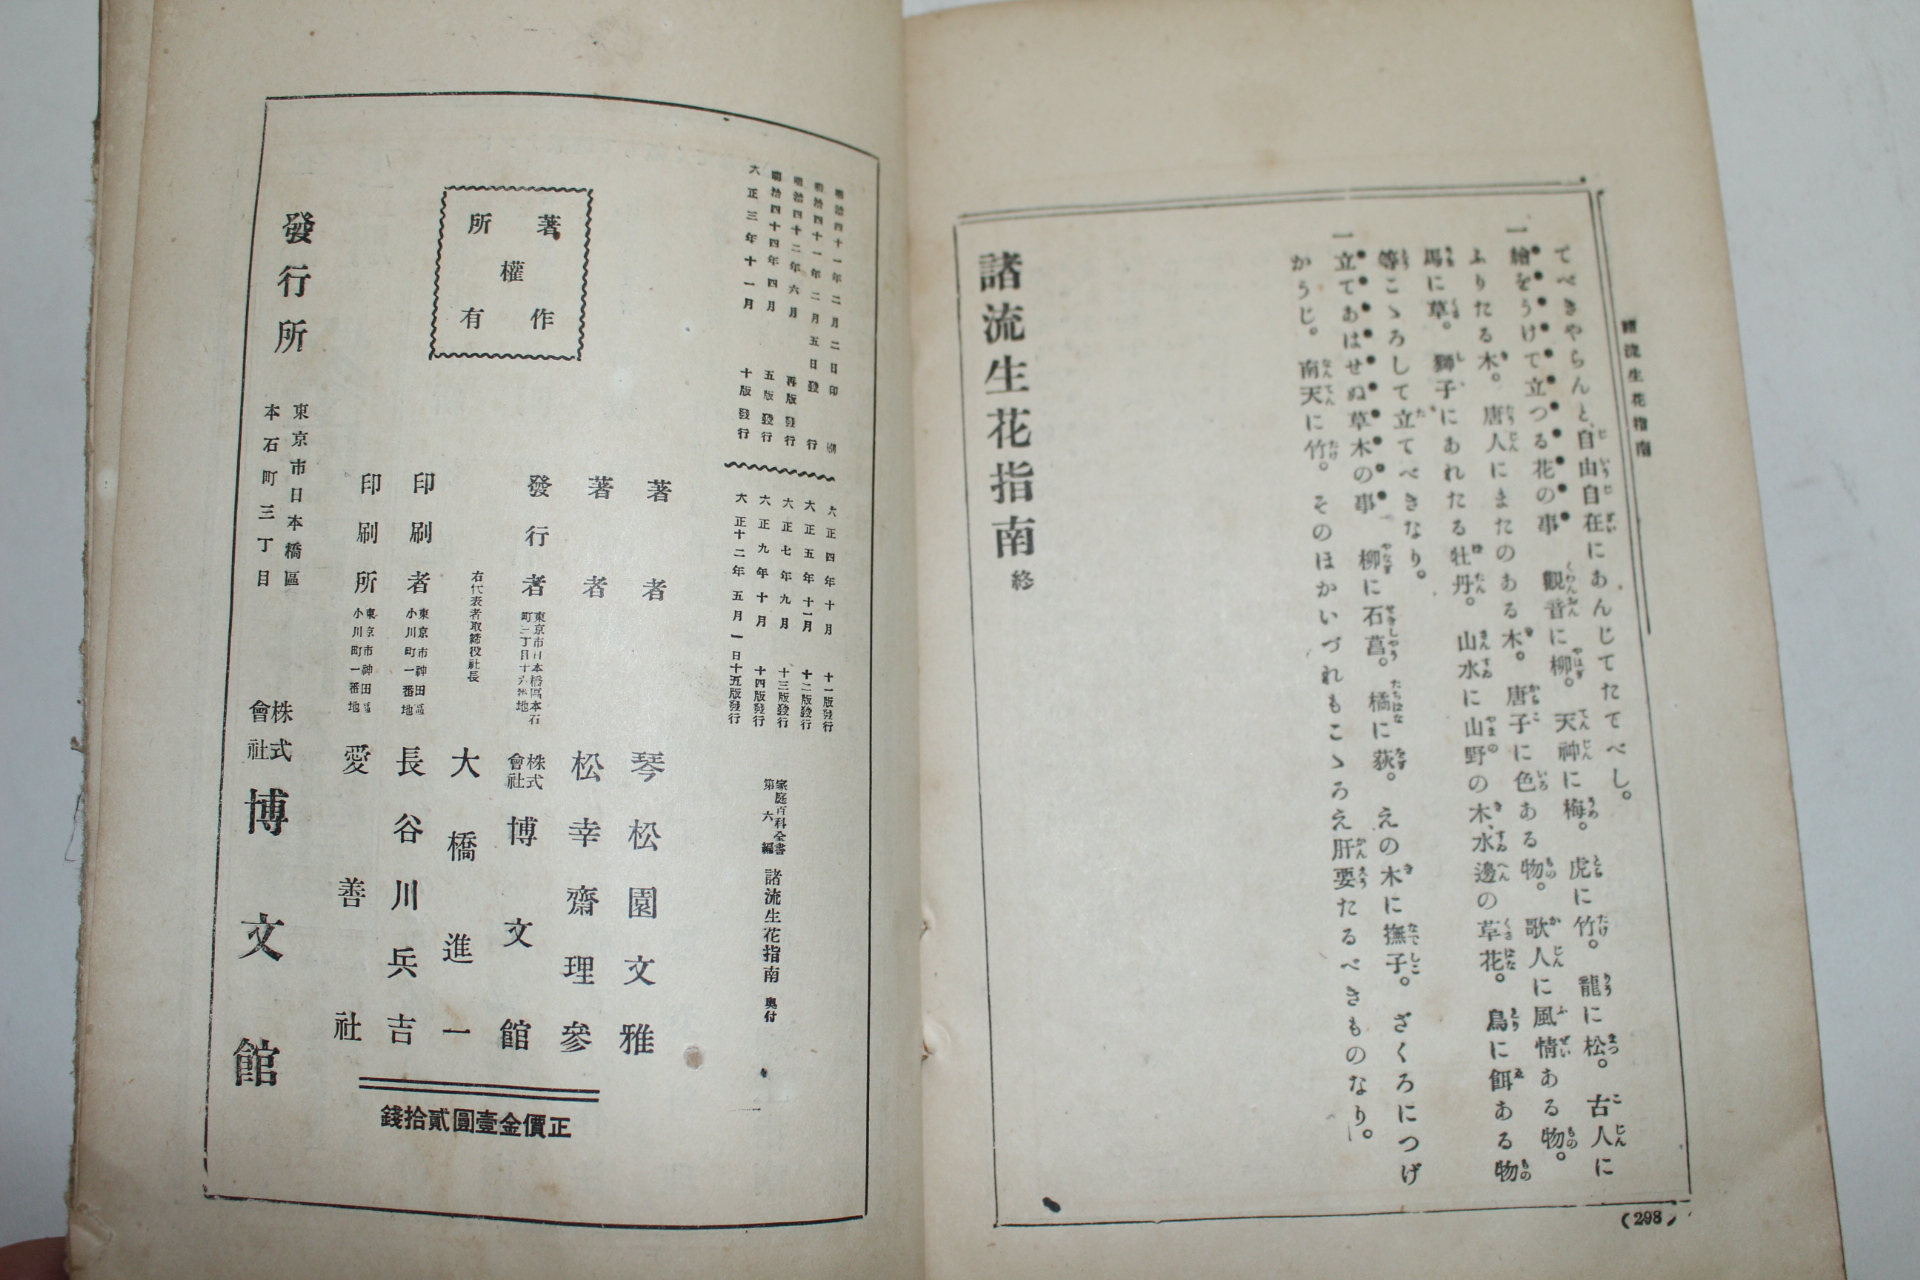 諸流生花指南
てべきやらんと、自由自在にあんじてたてべし。
一繪をうけて立つる花の事 觀音に柳。天神に梅。虎に竹。龍に松。古人に
ふりたる木。唐人にまたのある木。唐子に色ある物。歌人に風情ある物。
馬に草。獅子にあれたる牡丹。山水に山野の木、水邊の草花。鳥に餌ある物
等こゝろして立てべきなり。
一立てあはせぬ草木の事 柳に石菖。橘に荻。えの木に撫子。ざくろにつげ
かうじ。南天に竹。そのほかいづれもこゝろえ肝要たるべきものなり。
諸流生花指南 終
(298)
明治四十一年二月二日印刷
明治四十一年二月五日發行
明治四十二年六月 再版發行
明治四十四年四月 五版發行
大正三年十一月 十版發行
大正四年十月 十一版發行
大正五年十一月 十二版發行
大正七年九月 十三版發行
大正九年十月 十四版發行
大正十二年五月一日十五版發行
家庭百科全書
第六編
諸流生花指南 奧付
著作權所有
著者 琴松園文雅
著者 松幸齋理參
發行者 東京市日本橋區本石町三丁目十六番地 株式會社 博文館
右代表者取締役社長 大橋進一
印刷者 東京市神田區小川町一番地 長谷川兵吉
印刷所 東京市神田區小川町一番地 愛善社
正價金壹圓貳拾錢
發行所 東京市日本橋區本石町三丁目 株式會社 博文館